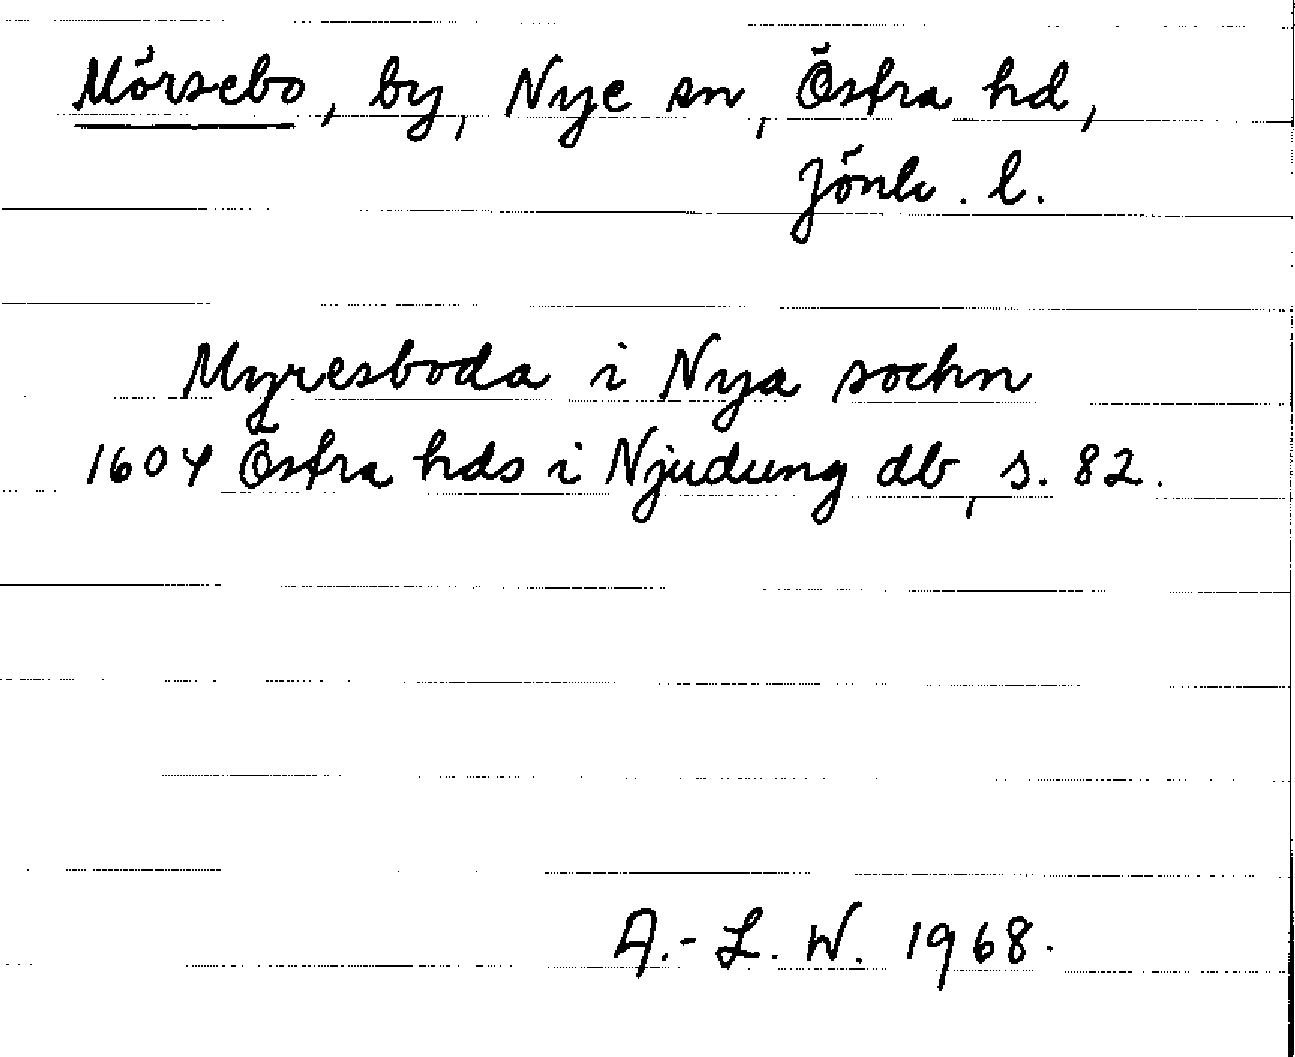 Mörsebo, by, Nye sn, Östra hd,
Jönk. l.
Myresboda i Nya sochn
1604 Östra hds i Njudung db, s. 82.
A.-L. W. 1968.